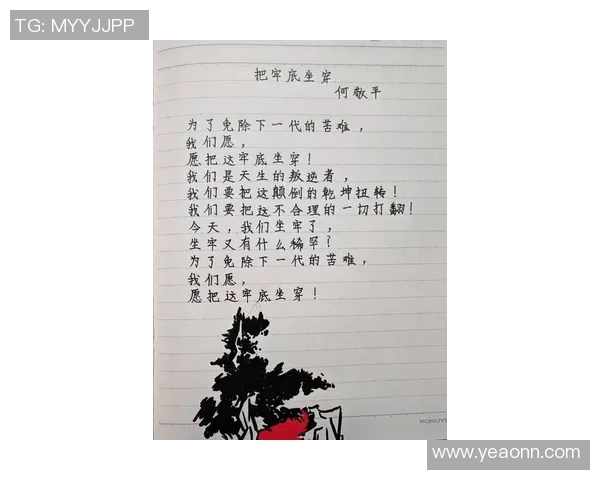 TG: MYYJJPP
把牢底坐穿
何敬平
为了免除下一代的苦难，
我们愿，
愿把这牢底坐穿！
我们是天生的叛逆者，
我们要把这颠倒的乾坤扭转！
我们要把这不合理的一切打翻！
今天，我们坐牢了，
坐牢又有什么稀罕？
为了免除下一代的苦难，
我们愿，
愿把这牢底坐穿！
KOKUYO
www.yeaonn.com